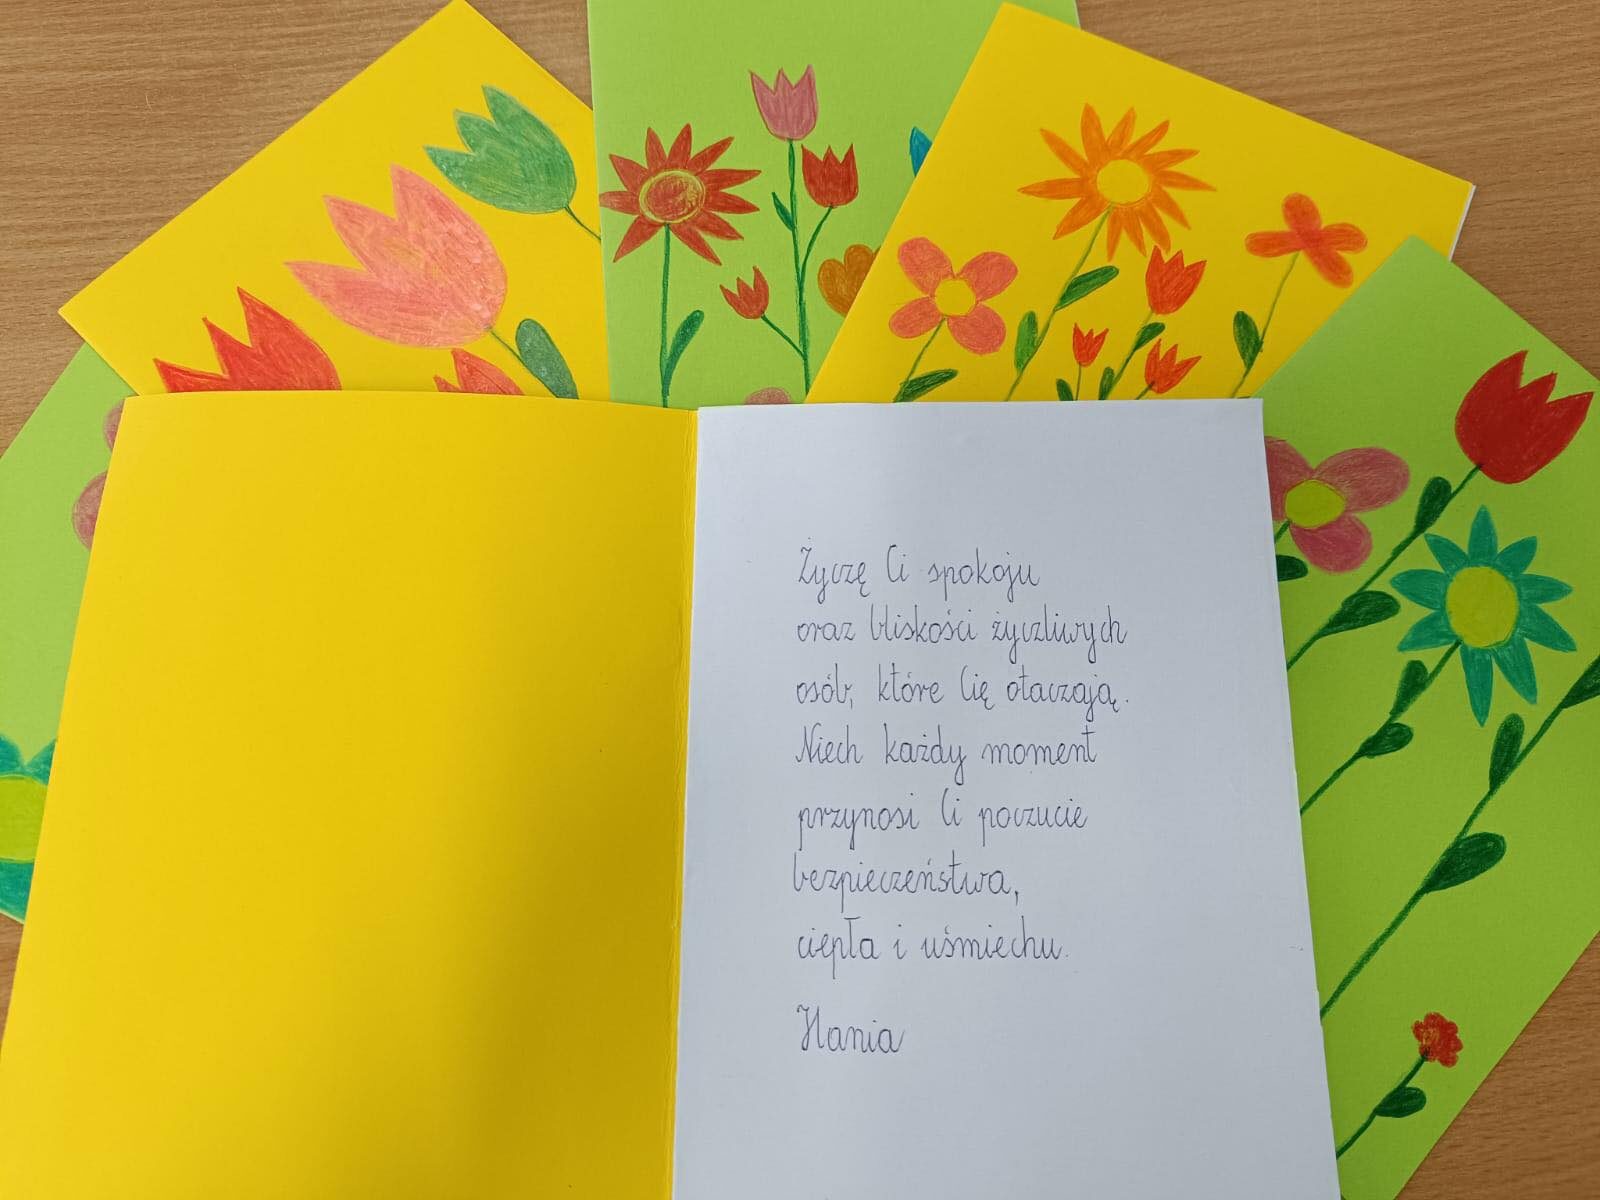 Życzę Ci spokoju
oraz bliskości życzliwych
osób, które Cię otaczają.
Niech każdy moment
przynosi Ci poczucie
bezpieczeństwa,
ciepła i uśmiechu.
Hania